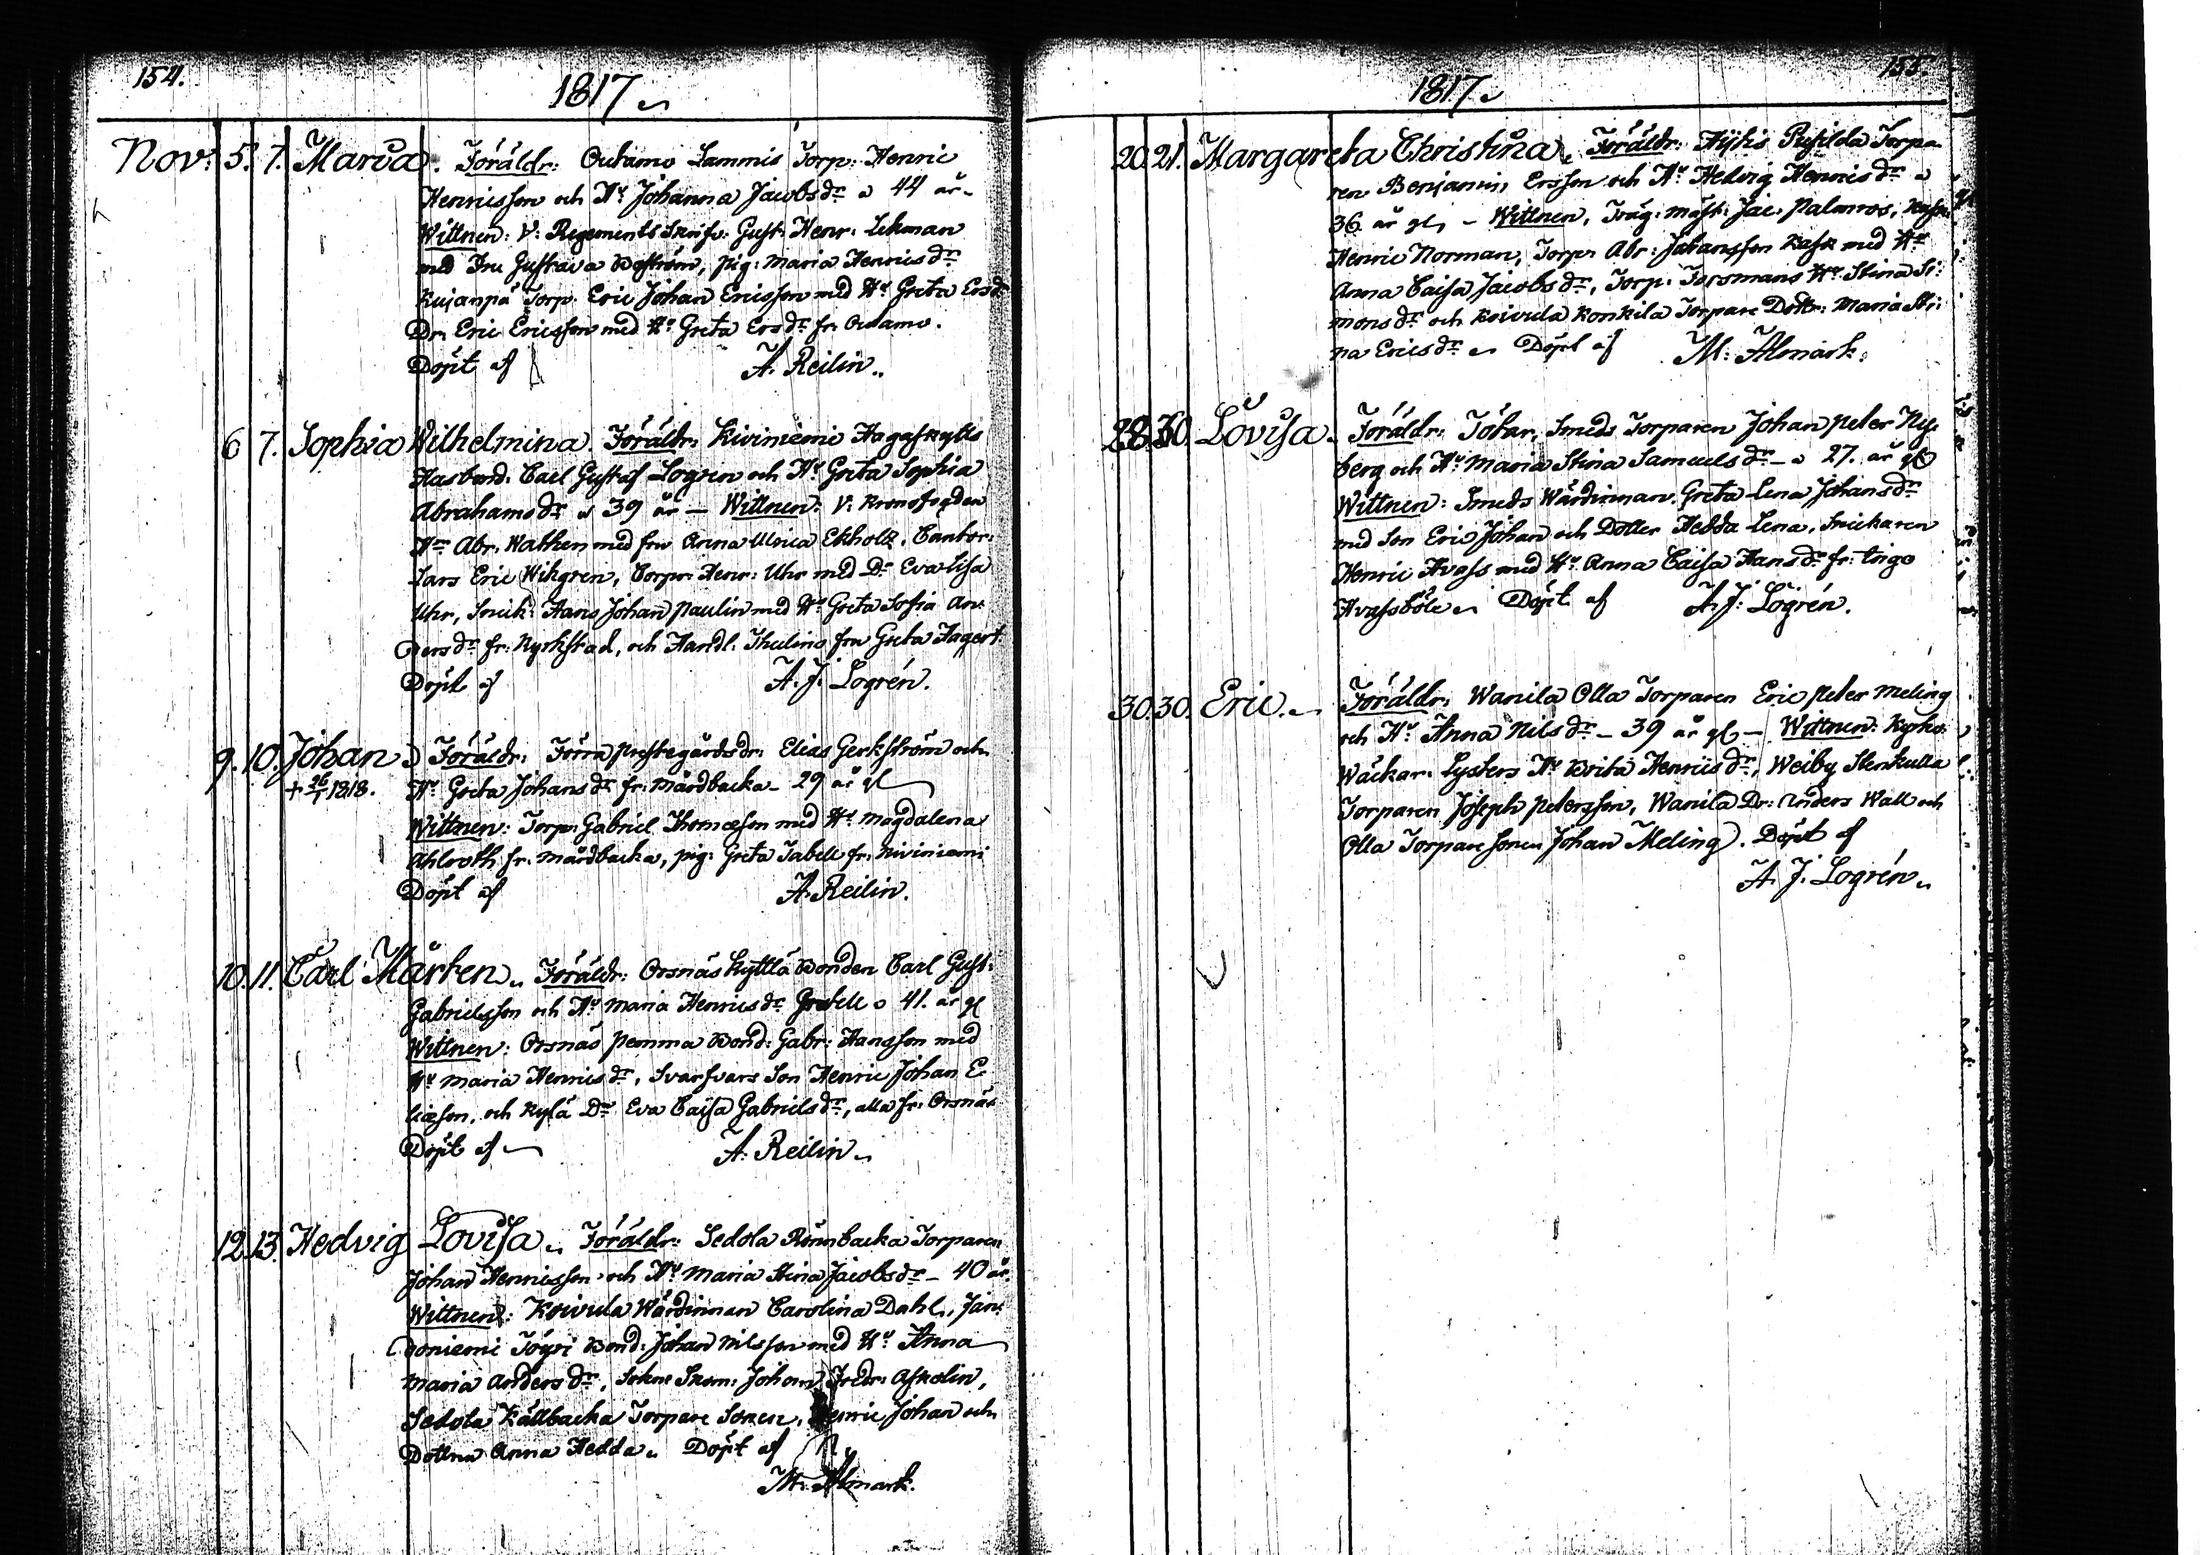 154.
1817
Nov: 5. 7. Maria. Föräldr: Outamo Lammis Torp: Henric
Henricsson och Hu Johanna Jacobsdr 44 år
Wittnen: V: Regements Skrifv: Gust: Henr: Lekman
med Fru Gustava Boström, pig: Maria Henricsdr
Kujanpä Torp: Eric Johan Ericsson med Hu Greta Ersdr
Dr: Eric Ericsson med Hu Greta Ersdr fr: Outamo.
Döpt af A. Reilin.
6 7. Sophia Wilhelmina. Föräldr: Kiviniemi
Carl Gustaf Logren och Hu Greta Sophia
Abrahamsdr 39 år — Wittnen: V: Kronofogden
Hr Abr. Wathen med fru Anna Ulrica Ekholz, Cantor:
Lars Eric Wikgren, Corpr: Henr: Uhr med Dr Eva Lisa
Uhr, Snick: Hans Johan Paulin med Hu Greta Sofia An-
dersdr fr: Nyrkstad, och Handl: Thulins fru Greta Hagert.
Döpt af A. J. Logrén.
9. 10. Johan Föräldr: Förra prestegårdsdr: Elias Gerkström och
+ 26/1 1818. Hu Greta Johansdr fr: Mårdbacka - 29 år gl
Wittnen: Torp: Gabriel Thomasson med Hu Magdalena
Ahlroth fr: Mårdbacka, pig: Greta Tabell fr: Kiviniemi
Döpt af A. Reilin.
10. 11. Carl Mårten. Föräldr: Orsnäs Kyttlä Bonden Carl Gust:
Gabrielsson och Hu Maria Henricsdr Grabell 41. år gl
Wittnen: Orsnäs Pemma Bond: Gabr: Hansson med
Hu Maria Henricsdr, Svarfvars Son Henric Johan E-
liasson, och Kylä Dr Eva Caisa Gabrielsdr, alla fr: Orsnäs
Döpt af A. Reilin
12. 13. Hedvig Lovisa. Föräldr: Sedola Rönnbacka Torparen
Johan Henricsson och Hu Maria Stina Jacobsdr - 40 år.
Wittnen: Koivula Wärdinnan Carolina Dahl, Jän-
doniemi Töyri Bond: Johan Nilsson med Hu Anna
Maria Andersdr, Sokne Skom: Johan Fredr: Askolin,
Sedola Källbacka Torpare Sonen, Henric Johan och
Dottren Anna Hedda. Döpt af
M. Almark.
155.
1817
20. 21. Margareta Christina. Föräldr: Hyhis Torpa-
ren Benjamin Ersson och Hu Hedvig Henricsdr
36 år gl, - Wittnen, Träg: mäst: Jac: Palmros,
Henric Norman, Torp: Abr: Johansson Kask med Hu
Anna Caisa Jacobsdr, Torp: Forsmans Hu Stina Si-
monsdr och Koivula Konkila Torpare Dottr: Maria Sti-
na Ericsdr Döpt af M: Almark.
28. 30. Lovisa. Föräldr: Töbar, Smeds Torparen Johan Peter Ny-
berg och Hu Maria Stina Samuelsdr - 27. år gl
Wittnen: Smeds Wärdinnan Greta Lena Johansdr
med Son Eric Johan och Dotter Hedda Lena, Snickaren
Henric Hvass med Hu Anna Caisa Hansdr fr: Ingo
Hvassböle. Döpt af A. J. Logrén.
30. 30. Eric. Föräldr: Wanila Olla Torparen Eric Peter Meling
och Hu Anna Nilsdr - 39 år gl - Wittnen: Kyrko-
Wäckar: Lysters Hu Brita Henricsdr, Weiby Stenkulla
Torparen Joseph Petersson, Wanila Dr: Anders Wall och
Olla Torpare Sonen Johan Meling. Döpt af
A. J. Logrén.